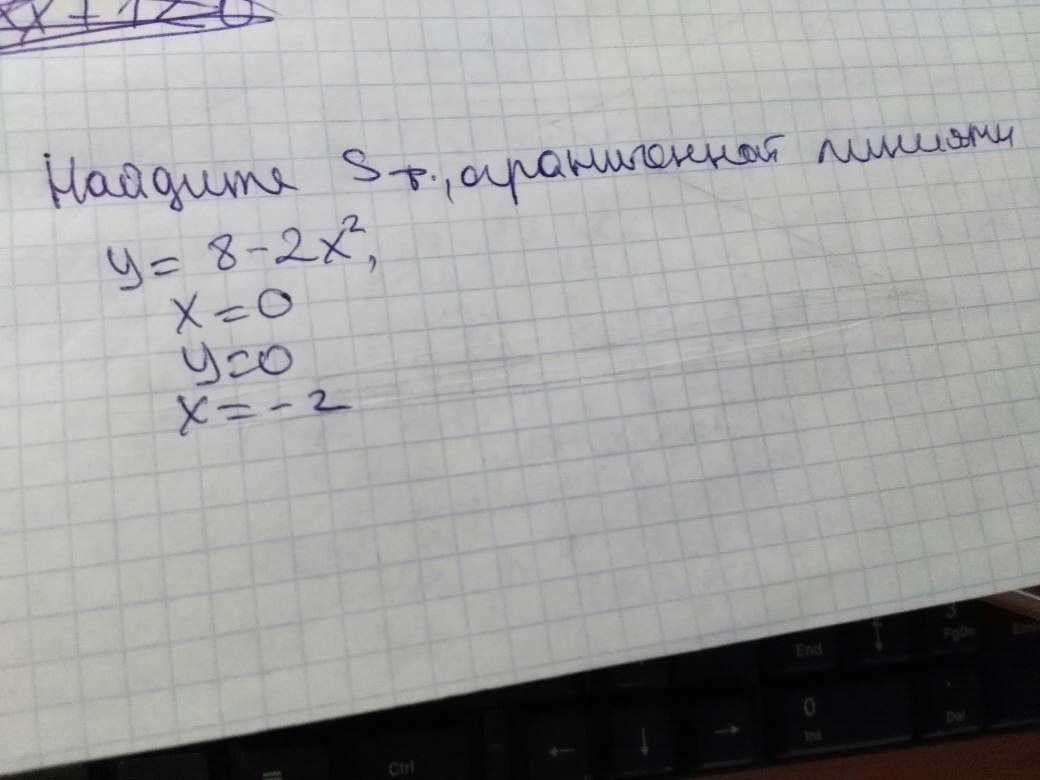 Найдите S ф., ограниченной линиями
y = 8-2x²,
x=0
y=0
x=-2
End
PgDn
0
Ins
.
Del
← ↓ →
Ctrl